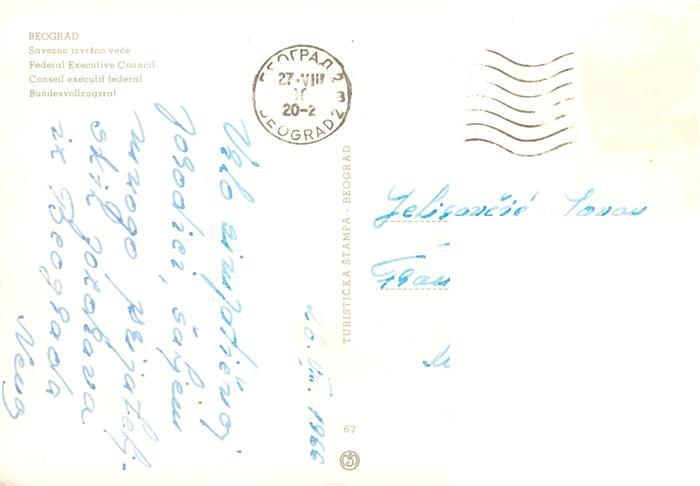 BEOGRAD
Savezno izvršno veće
Federal Executive Council
Conseil exécutif fédéral
Bundesvollzugsrat
БЕОГРАД 2
27·VIII
20-2
BEOGRAD 2
Vrlo simpatičnoj
porodici, šaljem
mnogo prijatelj-
skih pozdrava
iz Beograda
TURISTIČKA ŠTAMPA · BEOGRAD
67
26. VIII. 1966
Jelisavčić